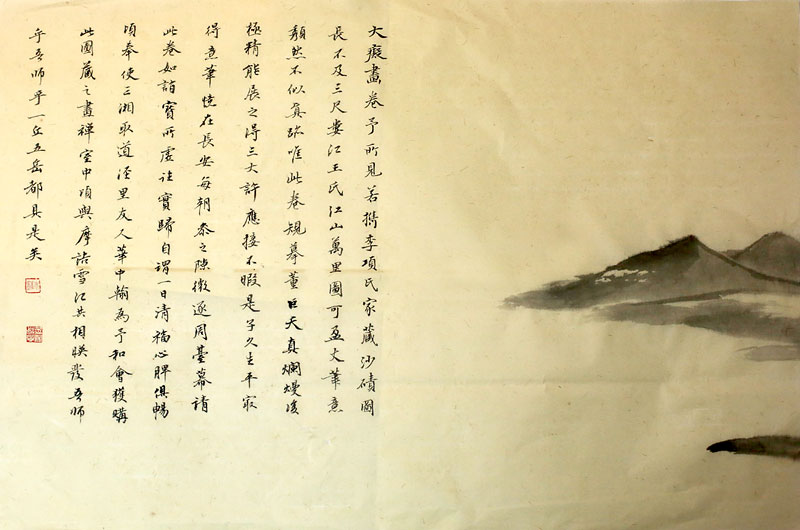 大癡畫卷予所見若檇李項氏家藏沙磧圖
長不及三尺婁江王氏江山萬里圖可盈丈筆意
頹然不似真跡唯此卷規摹董巨天真爛熳復
極精能展之得三大許應接不暇是子久生平冣
得意筆憶在長安每朝參之隙徵逐周臺幕請
此卷如詣寶所虛往實歸自謂一日清福心脾俱暢
頃奉使三湘取道涇里友人華中翰為予和會獲購
此圖藏之畫禪室中頃與摩詰雪江共相暎發吾師
乎吾師乎一丘五岳都具是矣